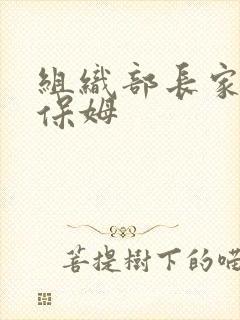 組織部長家
保姆
菩提樹下的喵